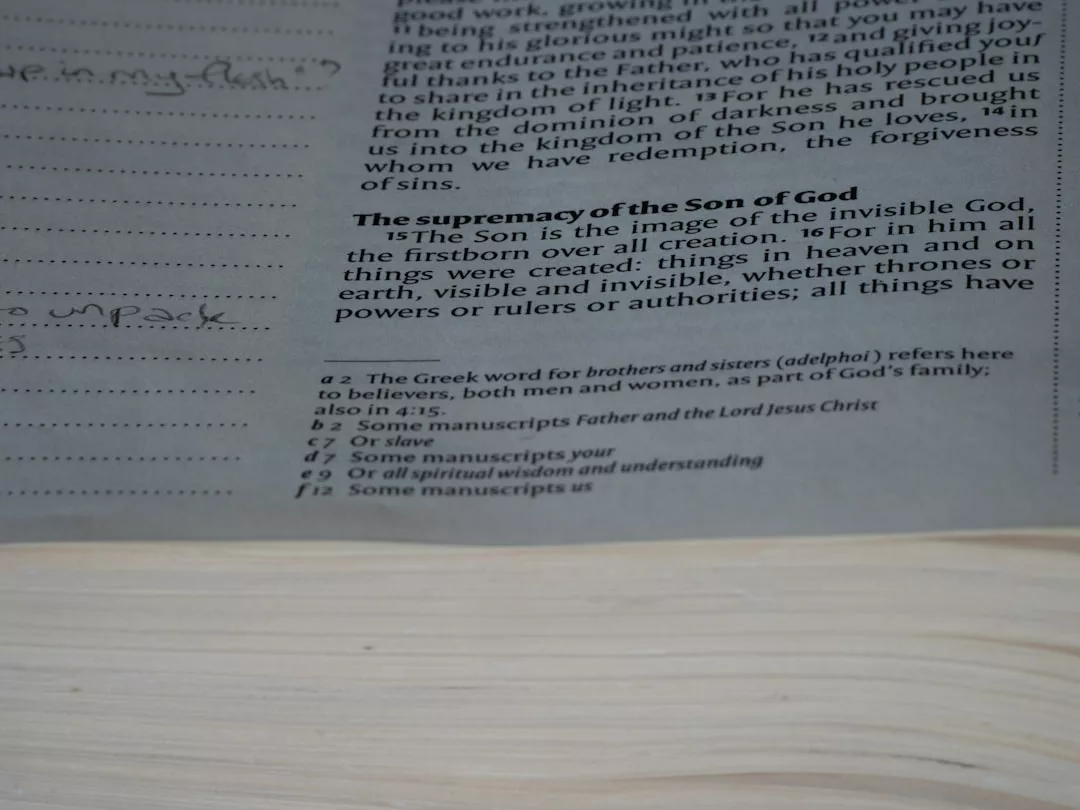 up in my flesh"?
to unpack
good work, growing in the
11 being strengthened with all power
ing to his glorious might so that you may have
great endurance and patience, 12 and giving joy-
ful thanks to the Father, who has qualified you f
to share in the inheritance of his holy people in
the kingdom of light. 13 For he has rescued us
from the dominion of darkness and brought
us into the kingdom of the Son he loves, 14 in
whom we have redemption, the forgiveness
of sins.
The supremacy of the Son of God
15 The Son is the image of the invisible God,
the firstborn over all creation. 16 For in him all
things were created: things in heaven and on
earth, visible and invisible, whether thrones or
powers or rulers or authorities; all things have
a 2 The Greek word for brothers and sisters (adelphoi) refers here
to believers, both men and women, as part of God's family;
also in 4:15.
b 2 Some manuscripts Father and the Lord Jesus Christ
c 7 Or slave
d 7 Some manuscripts your
e 9 Or all spiritual wisdom and understanding
f 12 Some manuscripts us